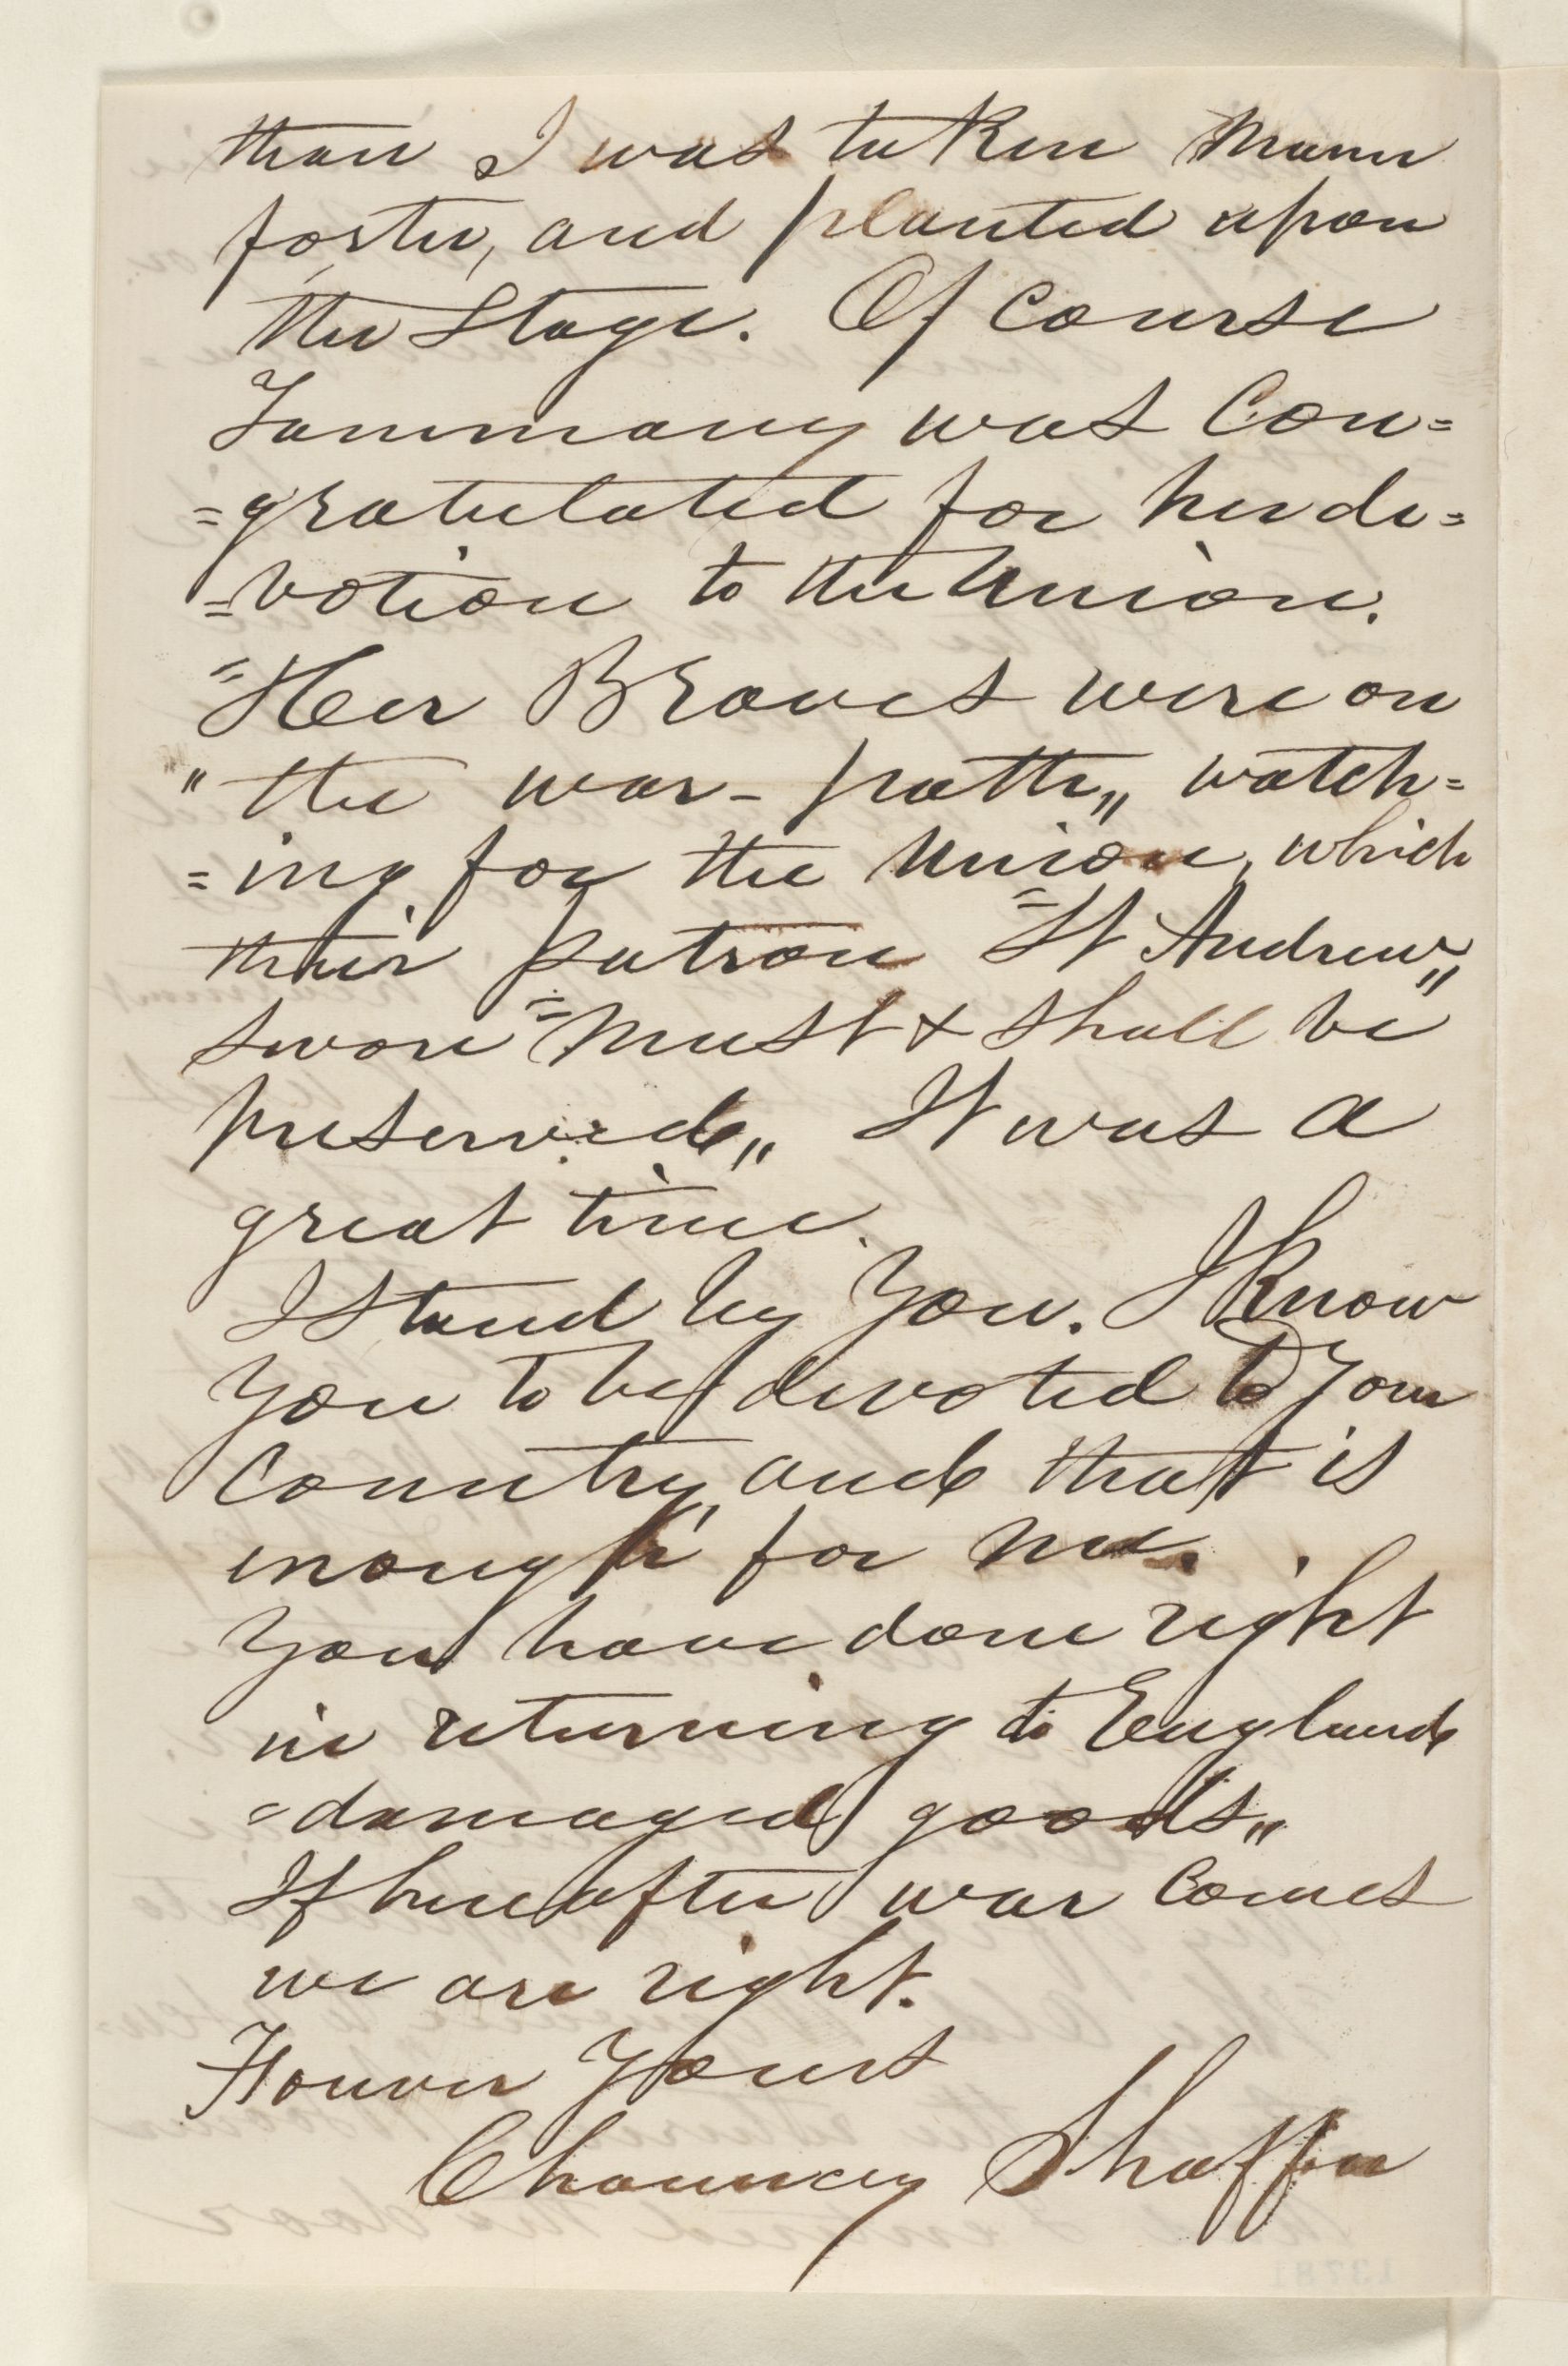 than I was taken manu
forter, and planted upon
the Stage. Of Course
Tammany was Con=
=gratulated for her de=
=votion to the Union.
"Her Braves were on
" the war-path„ watch=
=ing for the Union, which
their patron "St Andrew„
swore "must & shall be
preserved„ It was a
great time.
I Stand by You. I Know
You to be devoted to Your
Country, and that is
enough for me.
You have done right
in returning to England
"damaged goods„
If hereafter war Comes
we are right.
Forever Yours
Chauncey Shaffer